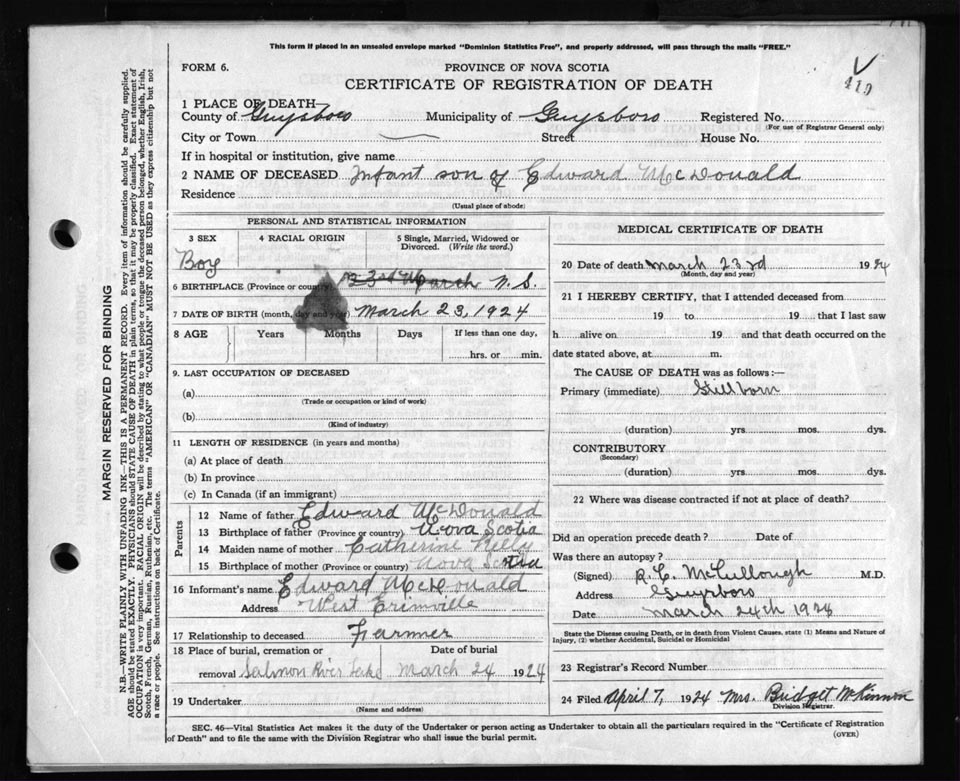 This form if placed in an unsealed envelope marked "Dominion Statistics Free", and properly addressed, will pass through the mails "FREE."
FORM 6.
PROVINCE OF NOVA SCOTIA
CERTIFICATE OF REGISTRATION OF DEATH
410
1 PLACE OF DEATH—
County of Guysboro Municipality of Guysboro Registered No.
(For use of Registrar General only)
City or Town Street House No.
If in hospital or institution, give name
2 NAME OF DECEASED Infant son of Edward McDonald
Residence
(Usual place of abode)
PERSONAL AND STATISTICAL INFORMATION
3 SEX 4 RACIAL ORIGIN 5 Single, Married, Widowed or Divorced. (Write the word.)
Boy
6 BIRTHPLACE (Province or country) 23rd March N.S.
7 DATE OF BIRTH (month, day and year) March 23, 1924
8 AGE Years Months Days If less than one day,
hrs. or min.
9. LAST OCCUPATION OF DECEASED
(a)
(Trade or occupation or kind of work)
(b)
(Kind of industry)
11 LENGTH OF RESIDENCE (in years and months)
(a) At place of death
(b) In province
(c) In Canada (if an immigrant)
Parents
12 Name of father Edward McDonald
13 Birthplace of father (Province or country) Nova Scotia
14 Maiden name of mother Catherine Kelly
15 Birthplace of mother (Province or country) Nova Scotia
16 Informant's name Edward McDonald
Address West Erinville
17 Relationship to deceased Farmer
18 Place of burial, cremation or removal Date of burial
Salmon River Lake March 24 1924
19 Undertaker
(Name and address)
MEDICAL CERTIFICATE OF DEATH
20 Date of death March 23rd 1924
(Month, day and year)
21 I HEREBY CERTIFY, that I attended deceased from
19 to 19 that I last saw
h alive on 19 and that death occurred on the
date stated above, at m.
The CAUSE OF DEATH was as follows:—
Primary (immediate) Stillborn
(duration) yrs. mos. dys.
CONTRIBUTORY
(Secondary)
(duration) yrs. mos. dys.
22 Where was disease contracted if not at place of death?
Did an operation precede death? Date of
Was there an autopsy?
(Signed) R. C. McCullough M.D.
Address Guysboro
Date March 24th
State the Disease causing Death, or in death from Violent Causes, state (1) Means and Nature of
Injury, (2) whether Accidental, Suicidal or Homicidal
23 Registrar's Record Number
24 Filed April 7, 1924 Mrs. Bridget McKinnon
Division Registrar.
SEC. 46—Vital Statistics Act makes it the duty of the Undertaker or person acting as Undertaker to obtain all the particulars required in the "Certificate of Registration
of Death" and to file the same with the Division Registrar who shall issue the burial permit.
(OVER)
MARGIN RESERVED FOR BINDING
N.B.—WRITE PLAINLY WITH UNFADING INK—THIS IS A PERMANENT RECORD. Every item of information should be carefully supplied.
AGE should be stated EXACTLY. PHYSICIANS should STATE CAUSE OF DEATH in plain terms, so that it may be properly classified. Exact statement of
OCCUPATION is very important. RACIAL ORIGIN will be described by stating to what people or tongue the deceased person belonged, whether English, Irish,
Scotch, French, German, Russian, Ruthenian, etc. The terms "AMERICAN" OR "CANADIAN" MUST NOT BE USED as they express citizenship but not
a race or people. See instructions on back of Certificate.